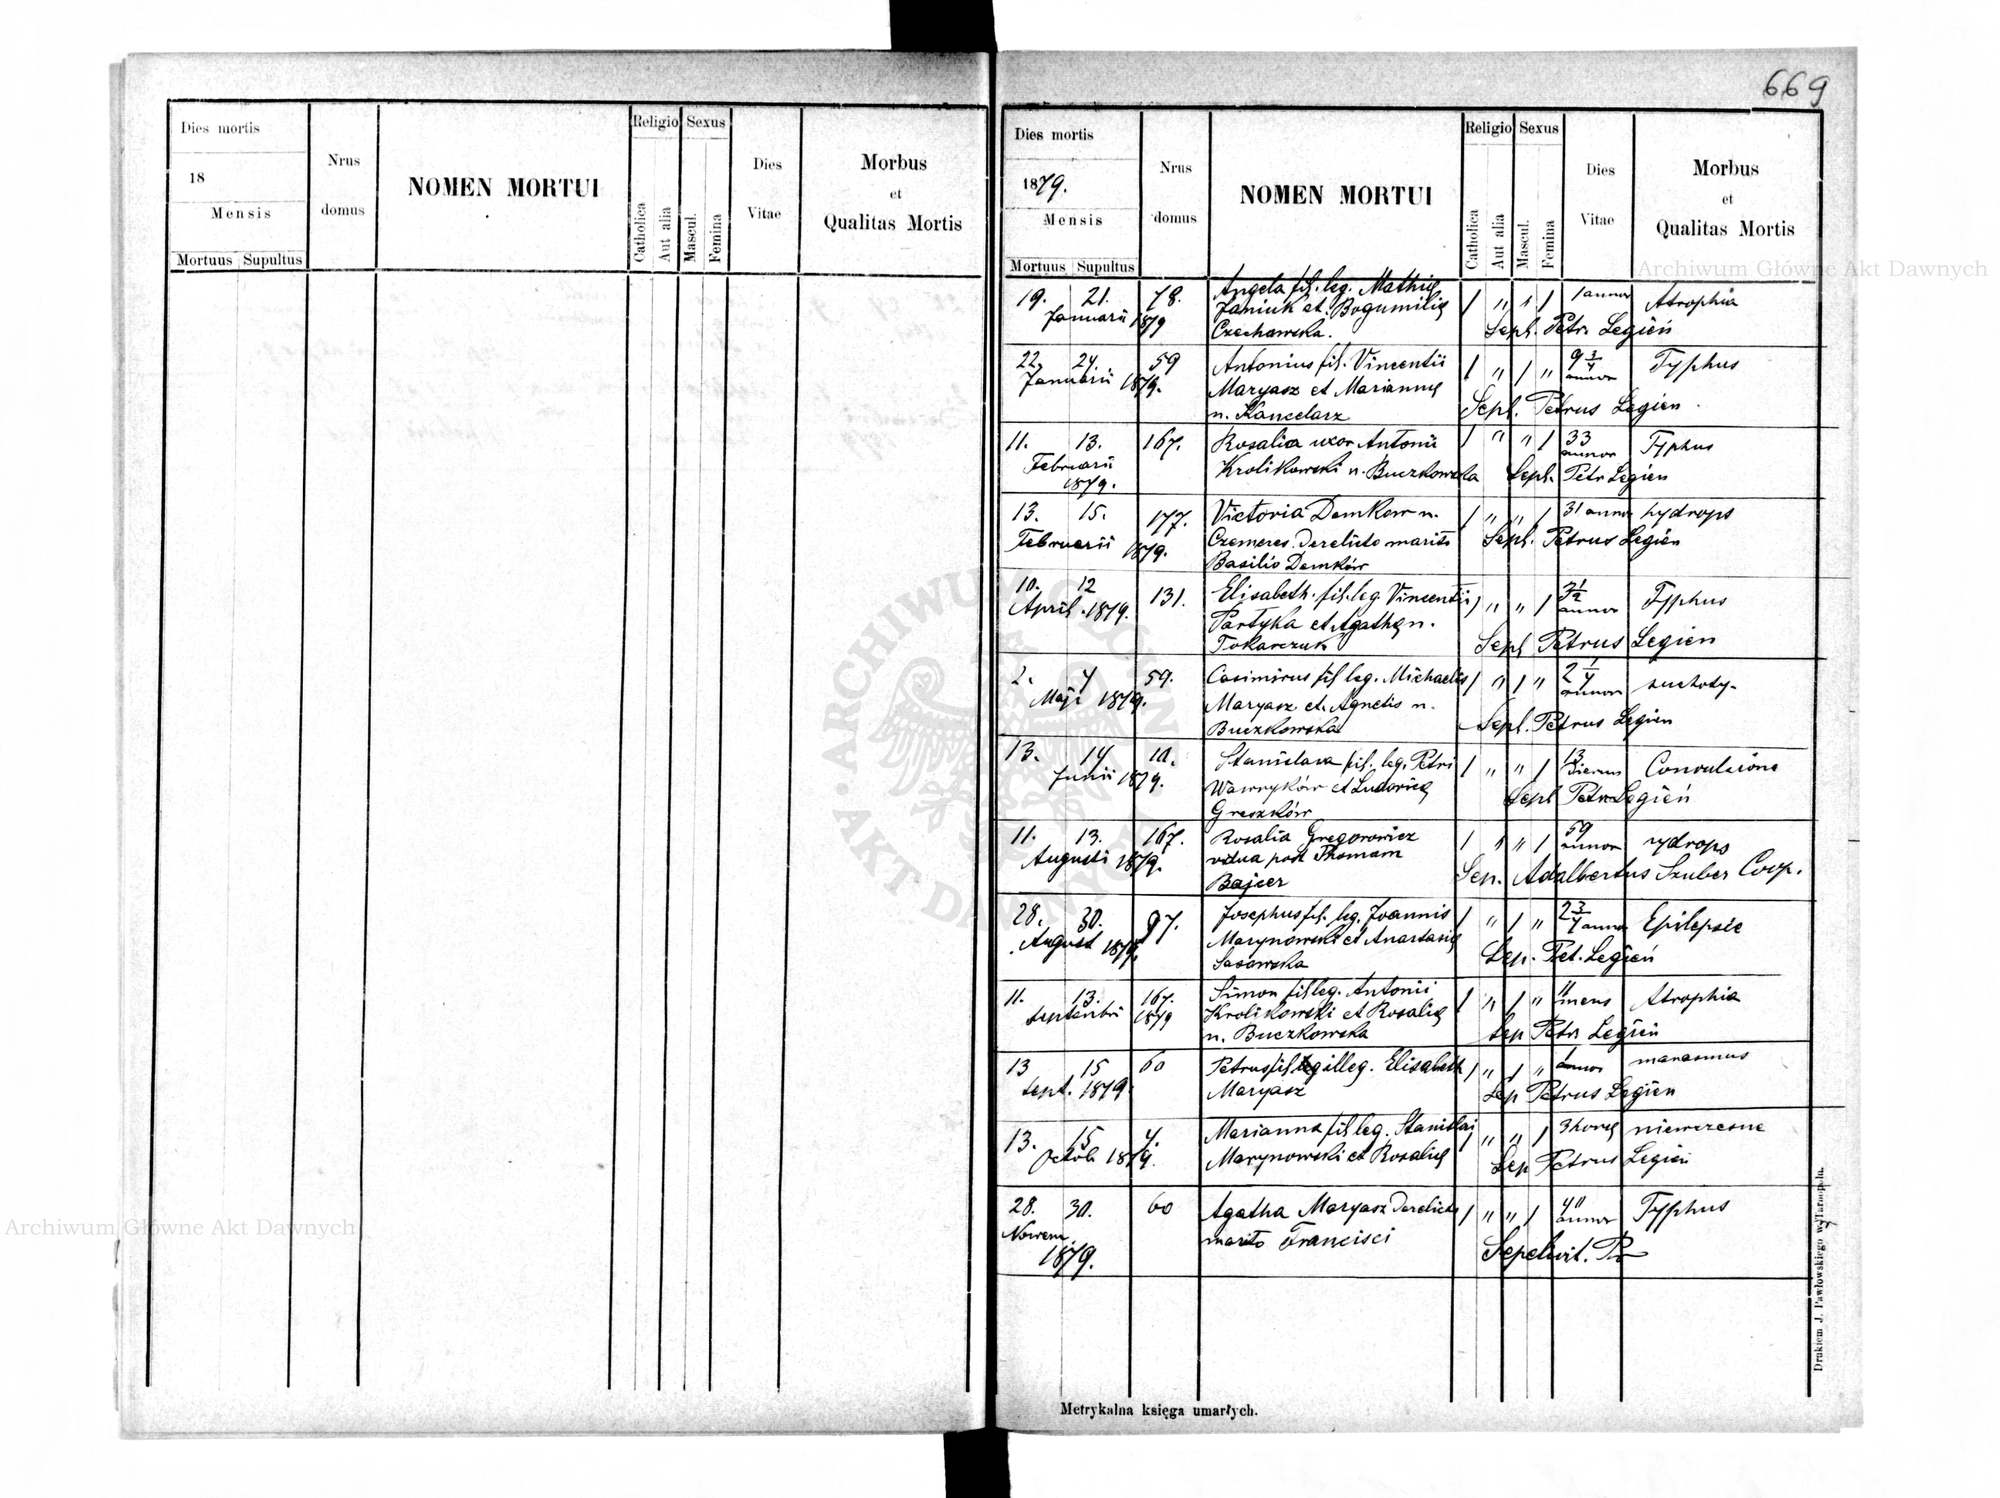 669
Dies mortis
18
Mensis
Mortuus Supultus
Nrus
domus
NOMEN MORTUI
Religio
Catholica
Aut alia
Sexus
Mascul.
Femina
Dies
Vitae
Morbus
et
Qualitas Mortis
Dies mortis
1879.
Mensis
Mortuus Supultus
Nrus
domus
NOMEN MORTUI
Religio
Catholica
Aut alia
Sexus
Mascul.
Femina
Dies
Vitae
Morbus
et
Qualitas Mortis
19. 21. 78. Angela fil. leg. Mathię 1 " " 1 1 annor Atrophia
Januarii 1879 Janiuk et Bogumilię
Czechowska. Sepl. Petr. Legień
22. 24. 59 Antonius fil. Vincentii 1 " 1 " 9 3/4 annor Typhus
Januarii 1879. Maryasz et Mariannę
n. Kancelarz Sepl. Petrus Legien
11. 13. 167. Rosalia uxor Antonii 1 " " 1 33 annor Typhus
Februarii Krolikowski n. Buczkowska Sepl. Petr Legień
1879.
13. 15. 177. Victoria Demkow n. 1 " " 1 31 annor hydrops
Februarii 1879. Czemeres. Derelicto marito Sepl. Petrus Legień
Basilio Demków
10. 12 131. Elisabeth. fil. leg Vincentii 1 " " 1 annor Typhus
April. 1879. Partyka et Agathę n.
Tokarczuk Sepl Petrus Legien
2. 4 59. Casimirus fil leg. Michaelis 1 " 1 " 2 1/4 annor suchoty.
Maji 1879. Maryasz et Agnetis n.
Buczkowska Sepl. Petrus Legien
13. 14 Stanislava fil. leg. Petri 1 " " 1 13 dierum Convulsione
Junii 1879. Wawryków et Ludovicę
Greszków Sepl Petr Legień
11. 13. 167. Rosalia Gregorowicz 1 " " 1 59 annor
Augusti 1879. vidua post Thomam
Bajcer Sep. Adalbertus Szuber Coop.
28. 30. 97. Josephus fil. leg. Joannis 1 " 1 " 2 3/4 annor Epilepsie
August 1879. Marynowski et Anastasię
Sasowska Sep. Pet. Legień
11. 13. 167. Simon fil leg. Antonii 1 " 1 " 11 mens Atrophia
Septembri 1879 Krolikowski et Rosalię
n. Buczkowska Sep Petr Legień
13 15 60 Petrus fil illeg. Elisabeth 1 " 1 " 1 annor marasmus
Sept. 1879. Maryasz Sep Petrus Legien
13. 15 4. Marianna fil leg. Stanislai 1 " " 1 3 horę niewczesne
Octob 1879. Marynowski et Rosalię Sep Petrus Legień
28. 30. 60 Agatha Maryasz Derelicta 1 " " 1 annor Typhus
Novem. marito Francisci
1879. Sepelivit.
Metrykalna księga umarłych.
Drukiem J. Pawłowskiego w Tarnopolu.
Archiwum Główne Akt Dawnych
Archiwum Główne Akt Dawnych
ARCHIWUM GŁÓWNE AKT DAWNYCH